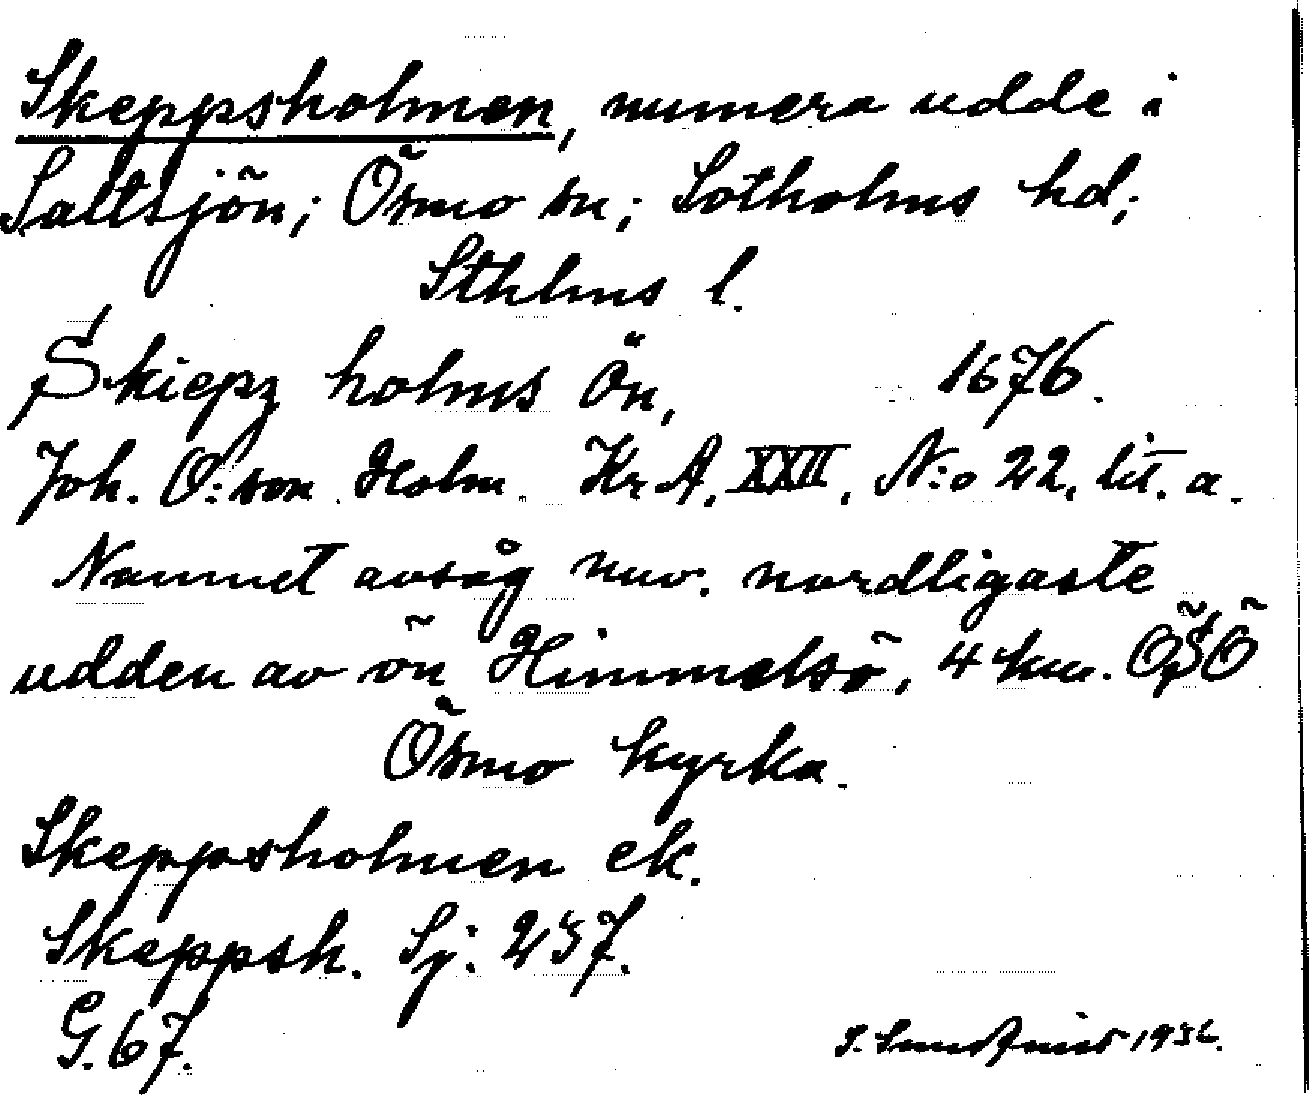 Skeppsholmen, numera udde i
Saltsjön; Ösmo sn; Sotholms hd;
Sthlms l.
Skiepz holms Ön, 1676.
Joh. O:son Holm. Kr A. XXII, N:o 22, lit. a.
Namnet avsåg nuv. nordligaste
udden av ön Himmelsö, 4 km. ÖSÖ
Ösmo kyrka.
Skeppsholmen ek.
Skeppsh. Sj: 237.
G. 67.